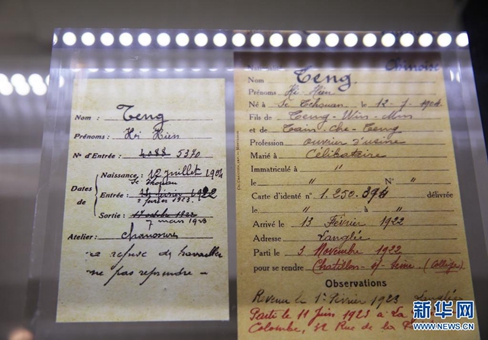 Teng
Nom :
Prénoms : Hi Hien
N° d'Entrée : 5370
Naissance : 12 juillet 1904
Se Tchouan
Dates
de
Entrée : 14 février 1922
2 février 1923.
Sortie :
7 mars 1923
Atelier : Chaussure
"a refusé de travailler"
ne pas reprendre —
Chinoise
Nom Teng
Prénoms Hi Hien
Né à Se Tchouan le 12-7-1904
Fils de Teng-Win-Min
et de Tam-Che-Teng
Profession ouvrier d'usine
Marié à Célibataire
Immatriculé à "
le "
Carte d'identité n° 1.250.394 délivrée
à " le "
Arrivé le 13 Février 1922
Adresse Langlée
Parti le 3 Novembre 1922
pour se rendre Chatillon-s/-Seine (Collège)
Observations
Revenu le 1er Février 1923 Langlée
Parti le 11 Juin 1923 à La
Colombe, 32 Rue de la
新华网
WWW.NEWS.CN